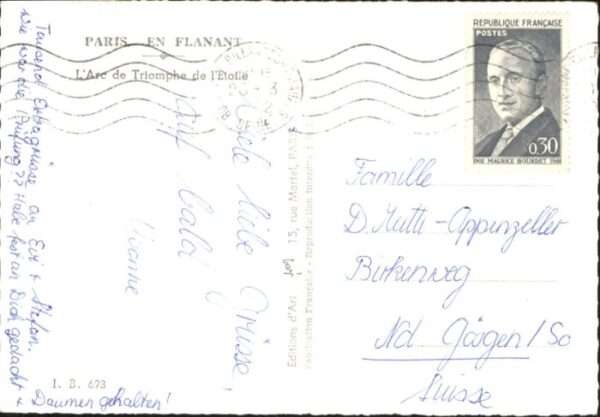 PARIS EN FLANANT
L'Arc de Triomphe de l'Étoile
REPUBLIQUE FRANÇAISE
POSTES
0,30
MAURICE BOURDET
Viele liebe Grüsse,
auf bald
Yvonne
Tausend Extragrüsse an Evi + Stefan.
Wie war die Prüfung?? Habe fest an Dich gedacht +
Daumen gehalten!
Editions d'Art
15, rue Martel, PARIS
Fabrication Française - Reproduction interdite
Famille
D. Hutti-Appenzeller
Birkenweg
Nd. Gösgen/So
Suisse
I. B. 673